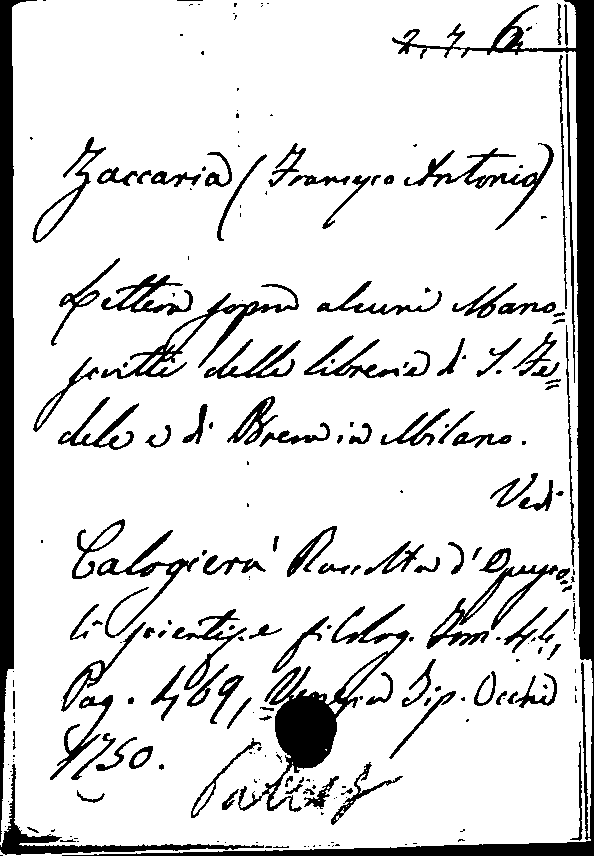 2, 7, 6
Zaccaria (Francesco Antonio)
Lettera sopra alcuni Mano=
scritti della libreria di S. Fe=
dele e di Brera in Milano.
Vedi
Calogierà Raccolta d'Opusco=
li scientif. e filolog. Tom. 44,
Pag. 469, Venezia Tip. Occhi
1750.